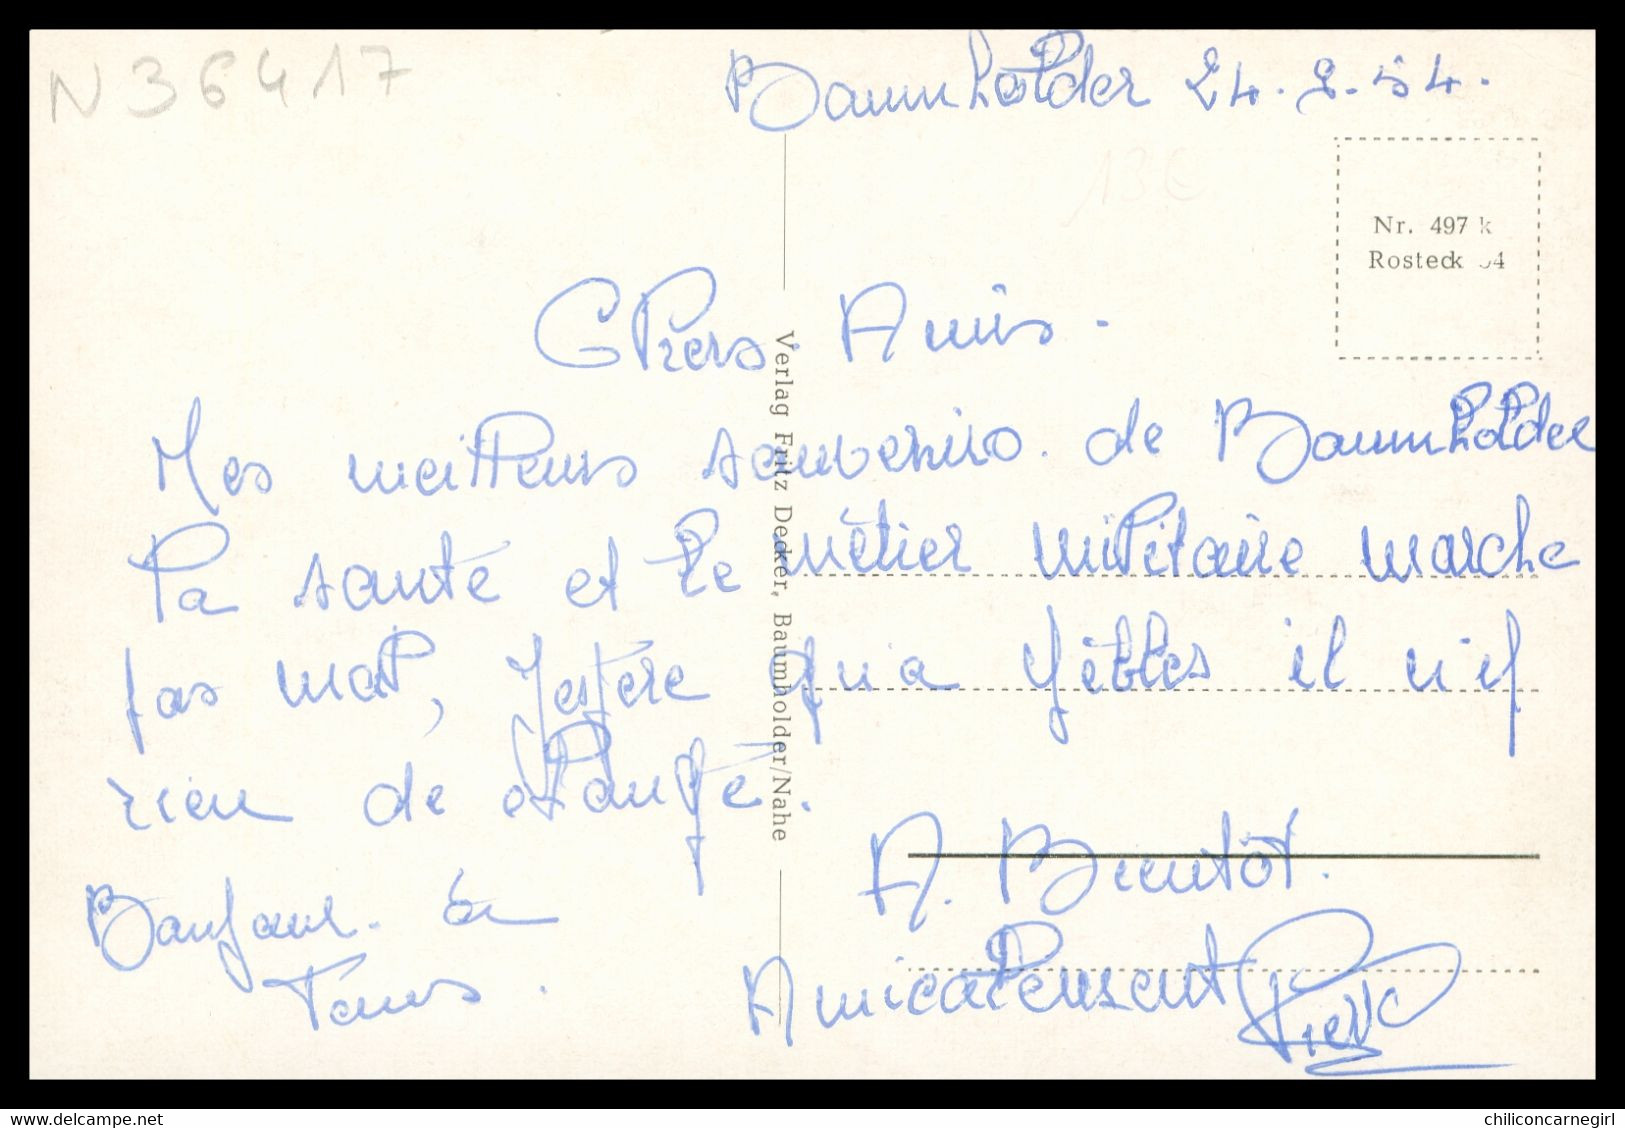 N 36417
Baumholder 24.2.54.
13€
Nr. 497 k
Rosteck 54
Chers Amis.
Mes meilleurs souvenirs de Baumholder
la santé et le métier militaire marche
pas mal, J'espère qu'a Yèbles il n'y
rien de changé.
Bonjour à
Tous.
A. Bientôt.
Amicalement Pierre
Verlag Fritz Decker, Baumholder/Nahe
www.delcampe.net
chiliconcarnegirl